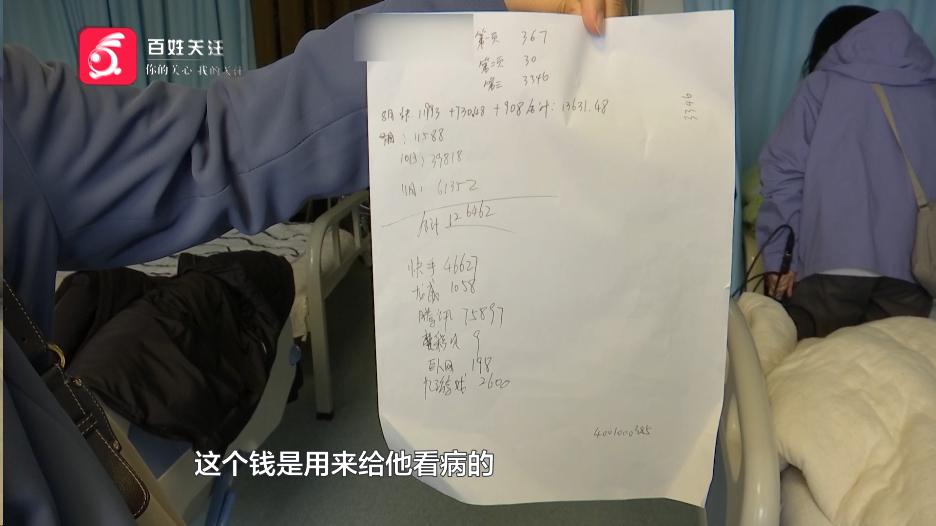 百姓关注
你的关心 我的关注
第一页 367
第二页 30
第三 3346
3346
8月 快 11993 +730.48 + 908 合计: 13631.48
: 11588
10月: 39818
11月: 61352
合计 126462
快手 46627
1058
腾讯 75897
9
198
2600
4001000385
这个钱是用来给他看病的